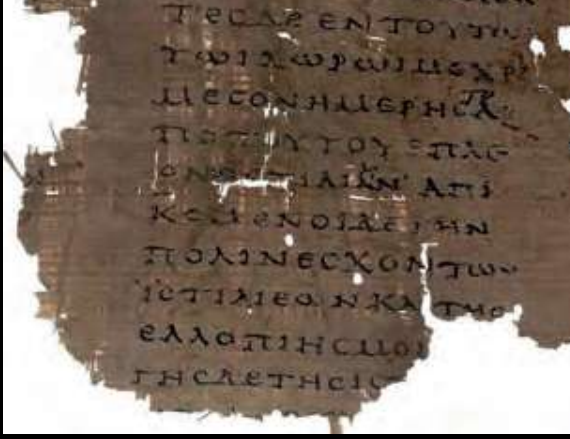 ΤΕϹΔΕΕΝΤΟΥΤΩΙ
ΤΩΙΧΩΡΩΙΜΕΧΡΙ
ΜΕϹΟΝΗΜΕΡΗϹΑ
ΠΟΤΟΥΤΟΥΕΠΛΕ
ΑΠΙ
ΚΟΜΕΝΟΙΔΕΤΗΝ
ΠΟΛΙΝΕϹΧΟΝΤΩΝ
ΙϹΤΙΑΙΕΩΝΚΑΙΤΗϹ
ΕΛΛΟΠΙΗϹΜΟΙ
ΓΗϹΔΕΤΗϹΙϹ